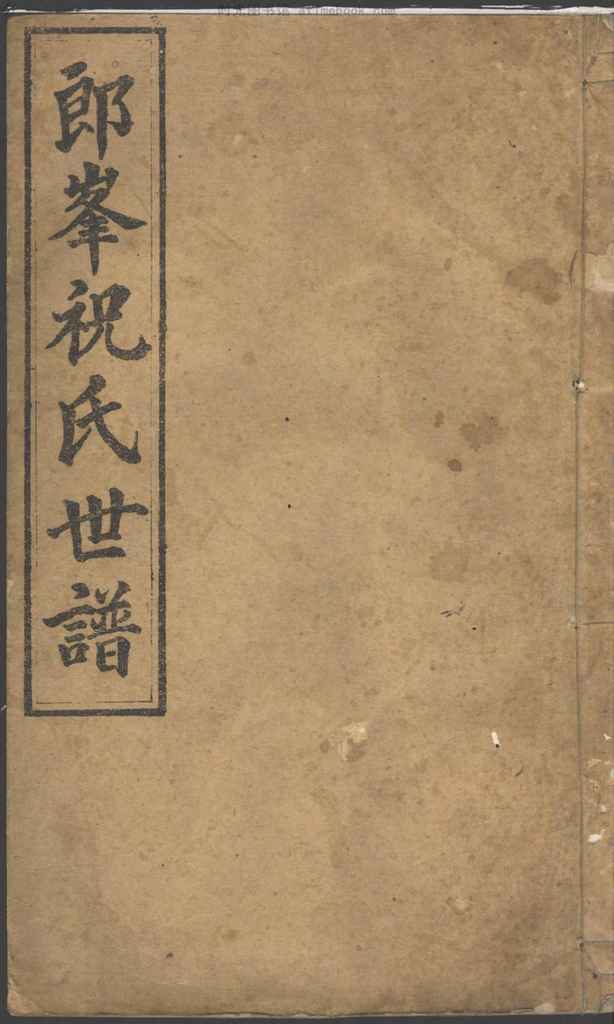 郎峯祝氏世譜